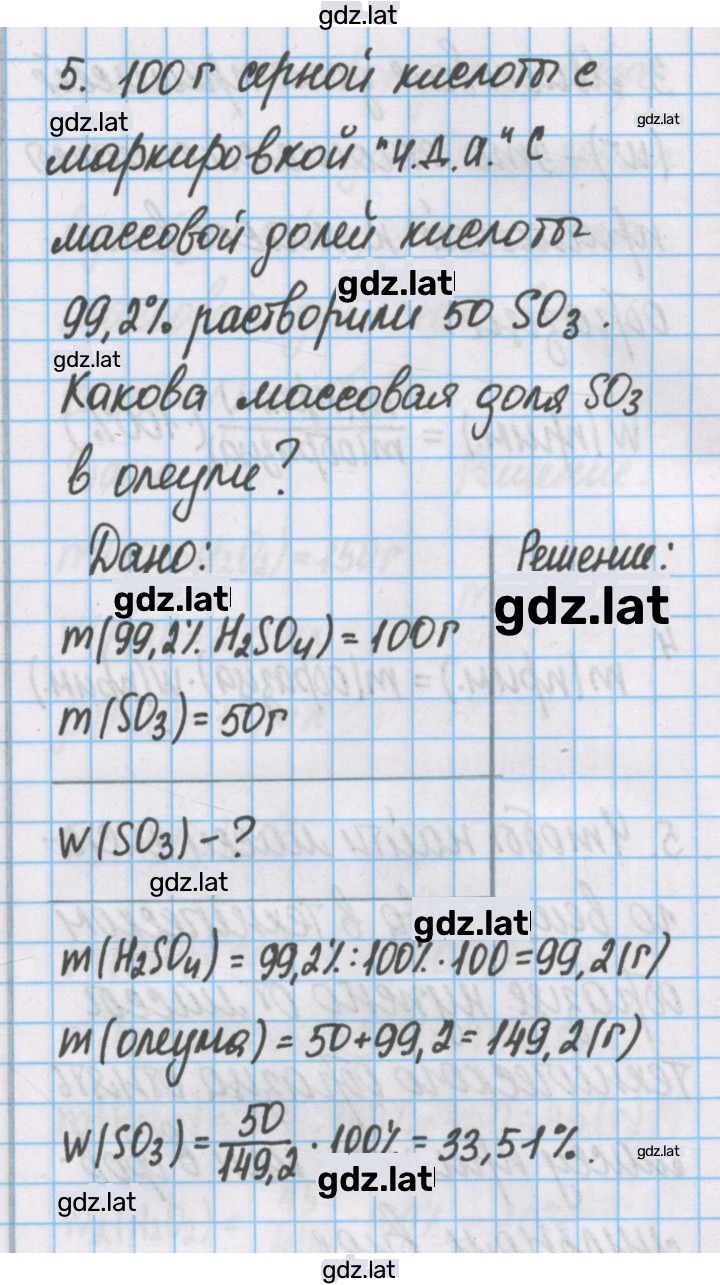 gdz.lat
5. 100 г серной кислоты с
gdz.lat
gdz.lat
маркировкой "Ч.Д.А." с
массовой долей кислоты
gdz.lat
99,2% растворили 50 SO₃.
gdz.lat
Какова массовая доля SO₃
в олеуме?
Дано:
Решение:
gdz.lat
gdz.lat
m(99,2% H₂SO₄) = 100 г
m(SO₃) = 50 г
W(SO₃) - ?
gdz.lat
gdz.lat
m(H₂SO₄) = 99,2% : 100% · 100 = 99,2 (г)
m(олеума) = 50 + 99,2 = 149,2 (г)
W(SO₃) = 50/149,2 · 100% = 33,51%.
gdz.lat
gdz.lat
gdz.lat
gdz.lat